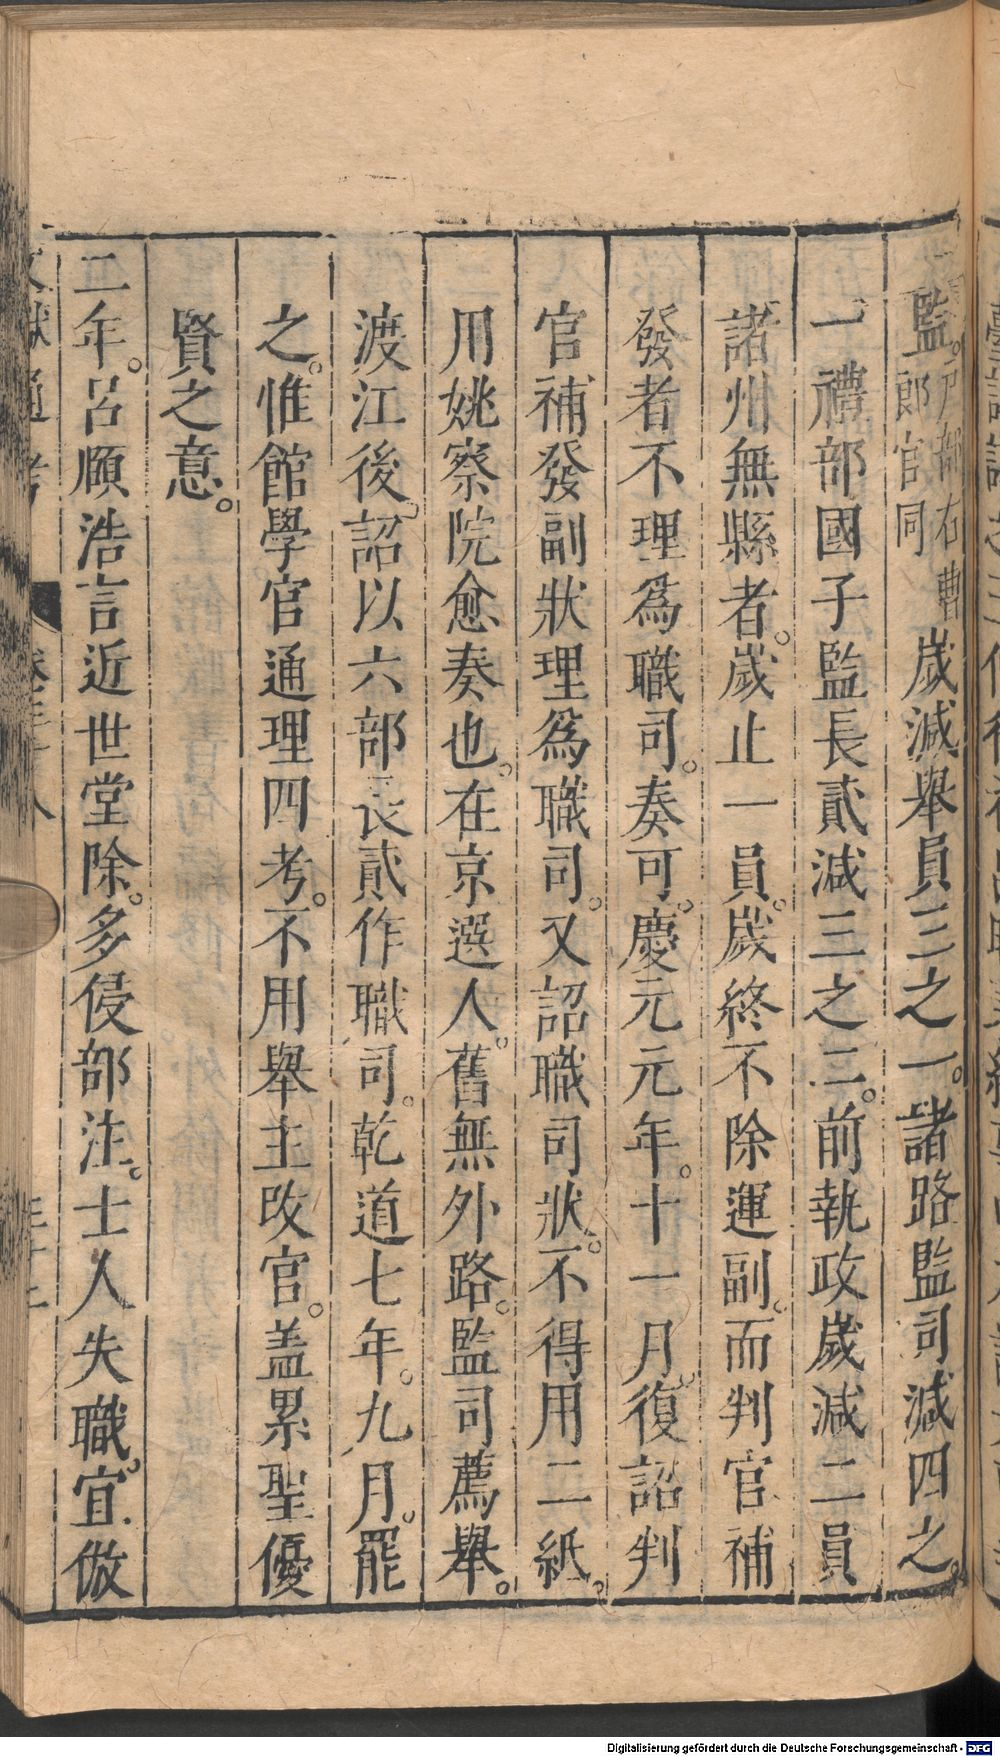 監。戶部右曹郎官同歲減舉員三之一。諸路監司減四之。
一禮部國子監長貳減三之二。前執政歲減二員
諸州無縣者。歲止一員。歲終不除運副。而判官補
發者不理爲職司。奏可。慶元元年。十一月。復詔判
官補發副狀理爲職司。又詔職司狀。不得用二紙。
用姚察院愈奏也。在京選人。舊無外路。監司薦舉。
渡江後。詔以六部長貳作職司。乾道七年。九月。罷
之。惟館學官通理四考。不用舉主改官。盖累聖優
賢之意。
二年。呂頤浩言近世堂除。多侵部注。士人失職。宜倣
文獻通考 卷三十八
Digitalisierung gefördert durch die Deutsche Forschungsgemeinschaft - DFG